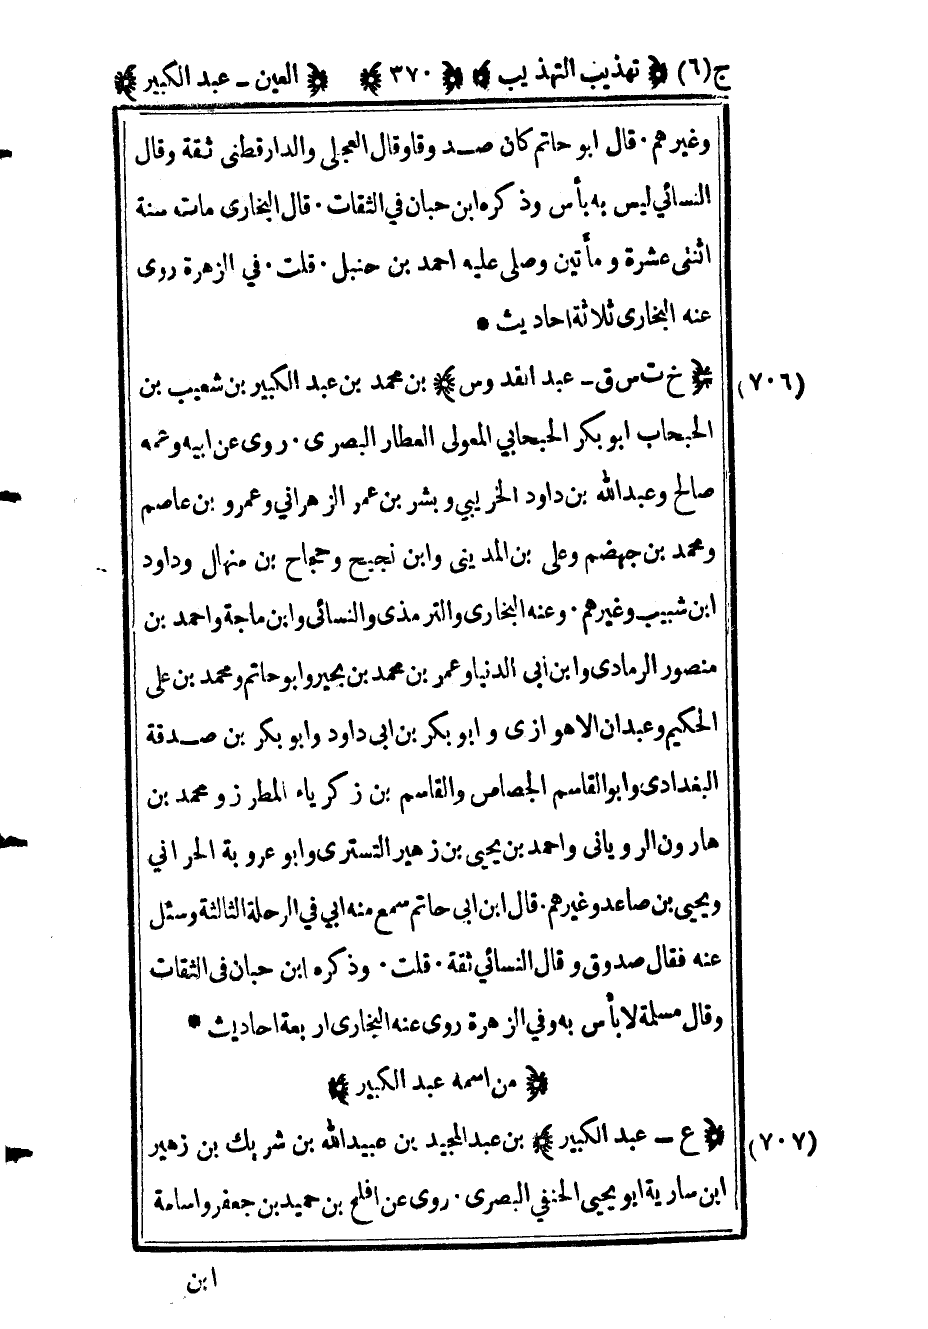 ج(٦) ﴿ تهذيب التهذيب ﴾ ﴿ ٣٧٠ ﴾ ﴿ العين ــ عبد الكبير ﴾
وغيرهم ٠ قال ابو حاتم كان صدوقا وقال العجلى والدارقطنى ثقة وقال
النسائي ليس به بأس وذكره ابن حبان في الثقات ٠ قال البخارى مات سنة
اثنتى عشرة و مأتين وصلى عليه احمد بن حنبل ٠ قلت ٠ في الزهرة روى
عنه البخارى ثلاثة احاديث *
(٧٠٦) ﴿ خ ت س ق ــ عبد القدوس ﴾ بن محمد بن عبد الكبير بن شعيب بن
الحبحاب ابو بكر الحبحابي المعولى العطار البصرى ٠ روى عن ابيه وعمه
صالح وعبدالله بن داود الخريبي و بشر بن عمر الزهراني وعمرو بن عاصم
ومحمد بن جهضم وعلى بن المدينى وابن نجيح وحجاج بن منهال وداود
ابن شبيب وغيرهم ٠ وعنه البخارى والترمذى والنسائى وابن ماجة واحمد بن
منصور الرمادى وابن أبى الدنيا وعمر بن محمد بن بجير وابو حاتم ومحمد بن على
الحكيم وعبدان الاهوازى و ابو بكر بن ابى داود وابو بكر بن صدقة
البغدادى وابوالقاسم الجصاص والقاسم بن زكرياء المطرز ومحمد بن
هارون الرويانى واحمد بن يحيى بن زهير التسترى وابو عروبة الحراني
ويحيى بن صاعد وغيرهم ٠ قال ابن ابى حاتم سمع منه ابي في الرحلة الثالثة وسئل
عنه فقال صدوق و قال النسائي ثقة ٠ قلت ٠ وذكره ابن حبان فى الثقات
وقال مسلمة لا بأس به وفي الزهرة روى عنه البخارى اربعة احاديث *
﴿ من اسمه عبد الكبير ﴾
(٧٠٧) ﴿ ع ــ عبد الكبير ﴾ بن عبد المجيد بن عبيدالله بن شريك بن زهير
ابن سارية ابو يحيى الحنفي البصرى ٠ روى عن افلح بن حميد بن جعفر واسامة
ابن